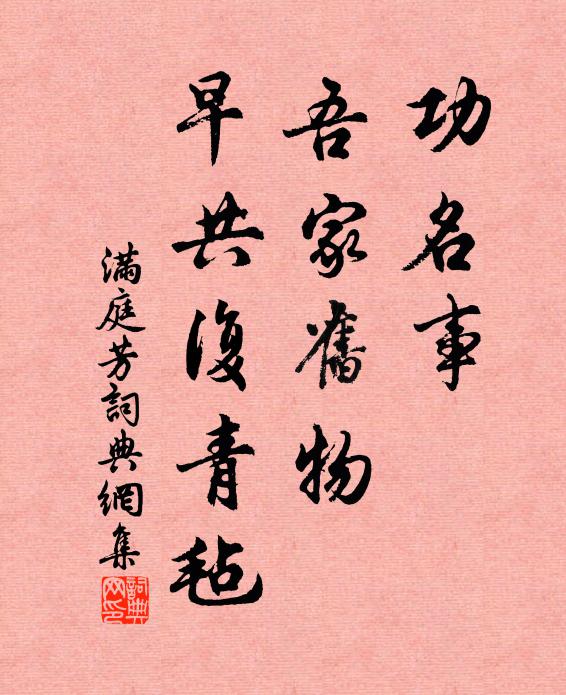 功名事
吾家舊物
早共復青毡
滿庭芳詞典網集
詞典网印